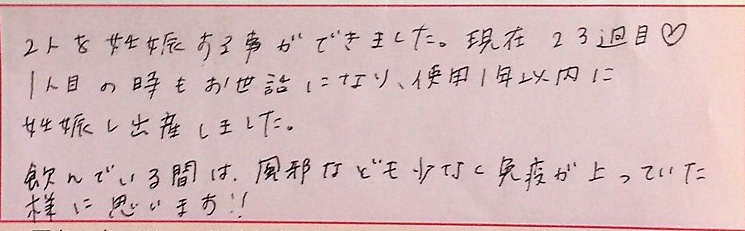 2人を妊娠する事ができました。現在23週目♡
1人目の時もお世話になり、使用1年以内に
妊娠し出産しました。
飲んでいる間は、風邪なども少なく免疫が上っていた
様に思います!!